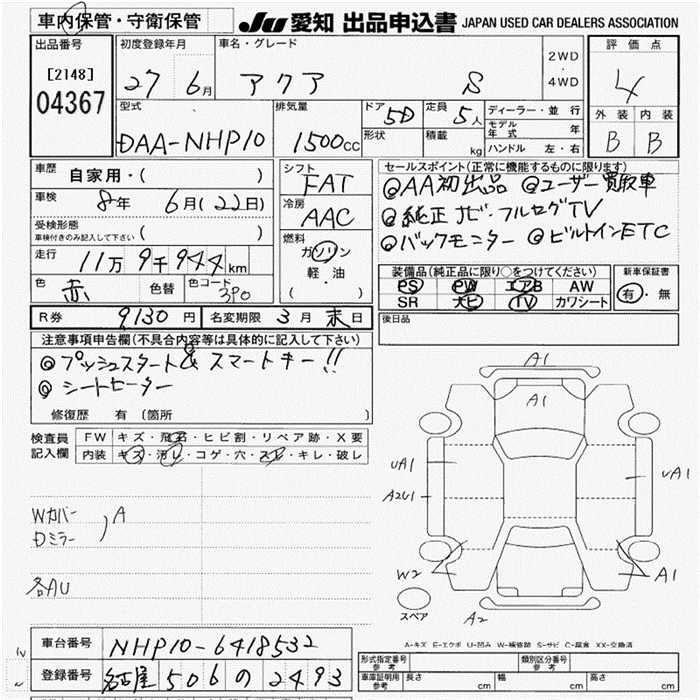 車内保管・守衛保管
JU 愛知 出品申込書 JAPAN USED CAR DEALERS ASSOCIATION
出品番号 初度登録年月 車名・グレード 2WD ・ 4WD 評価点
[2148]
04367 27 6月 アクア S 4
型式 排気量 ドア 5D 定員 5人 ディーラー・並行 外装 内装
DAA-NHP10 1500cc 形状 積載 kg モデル年式 年 B B
ハンドル 左・右
車歴 自家用・( ) シフト FAT セールスポイント(正常に機能するものに限ります)
車検 8年 6月(22日) 冷房 AAC ◎AA初出品 ◎ユーザー買取車
受検形態 ( ) ◎純正ナビ・フルセグTV
車検付きのみ記入して下さい
走行 11万9千944km 燃料 ガソリン 軽・油 ( ) ◎バックモニター ◎ビルトインETC
色 赤 色替 色コード 3P0 装備品(純正品に限り○をつけてください) 新車保証書
PS PW エアB AW 有・無
SR ナビ TV カワシート
R券 9,130円 名変期限 3月末日 後日品
注意事項申告欄(不具合内容等は具体的に記入して下さい)
◎プッシュスタート&スマートキー!!
◎シートヒーター
修復歴 有 (箇所 )
検査員記入欄 FW キズ・飛石・ヒビ割・リペア跡・X要
内装 キズ・汚レ・コゲ・穴・スレ・キレ・破レ
A1
A1
UA1 UA1
A2U1
Wカバー
Dミラー ) A
W2 A1
各AU
スペア A2
A-キズ E-エクボ U-凹み W-補修跡 S-サビ C-腐食 XX-交換済
車台番号 NHP10-6418532
登録番号 名古屋 506 の 2493
形式指定番号 参考 類別区分番号 参考
車庫証明用 参考 長さ cm 幅 cm 高さ cm